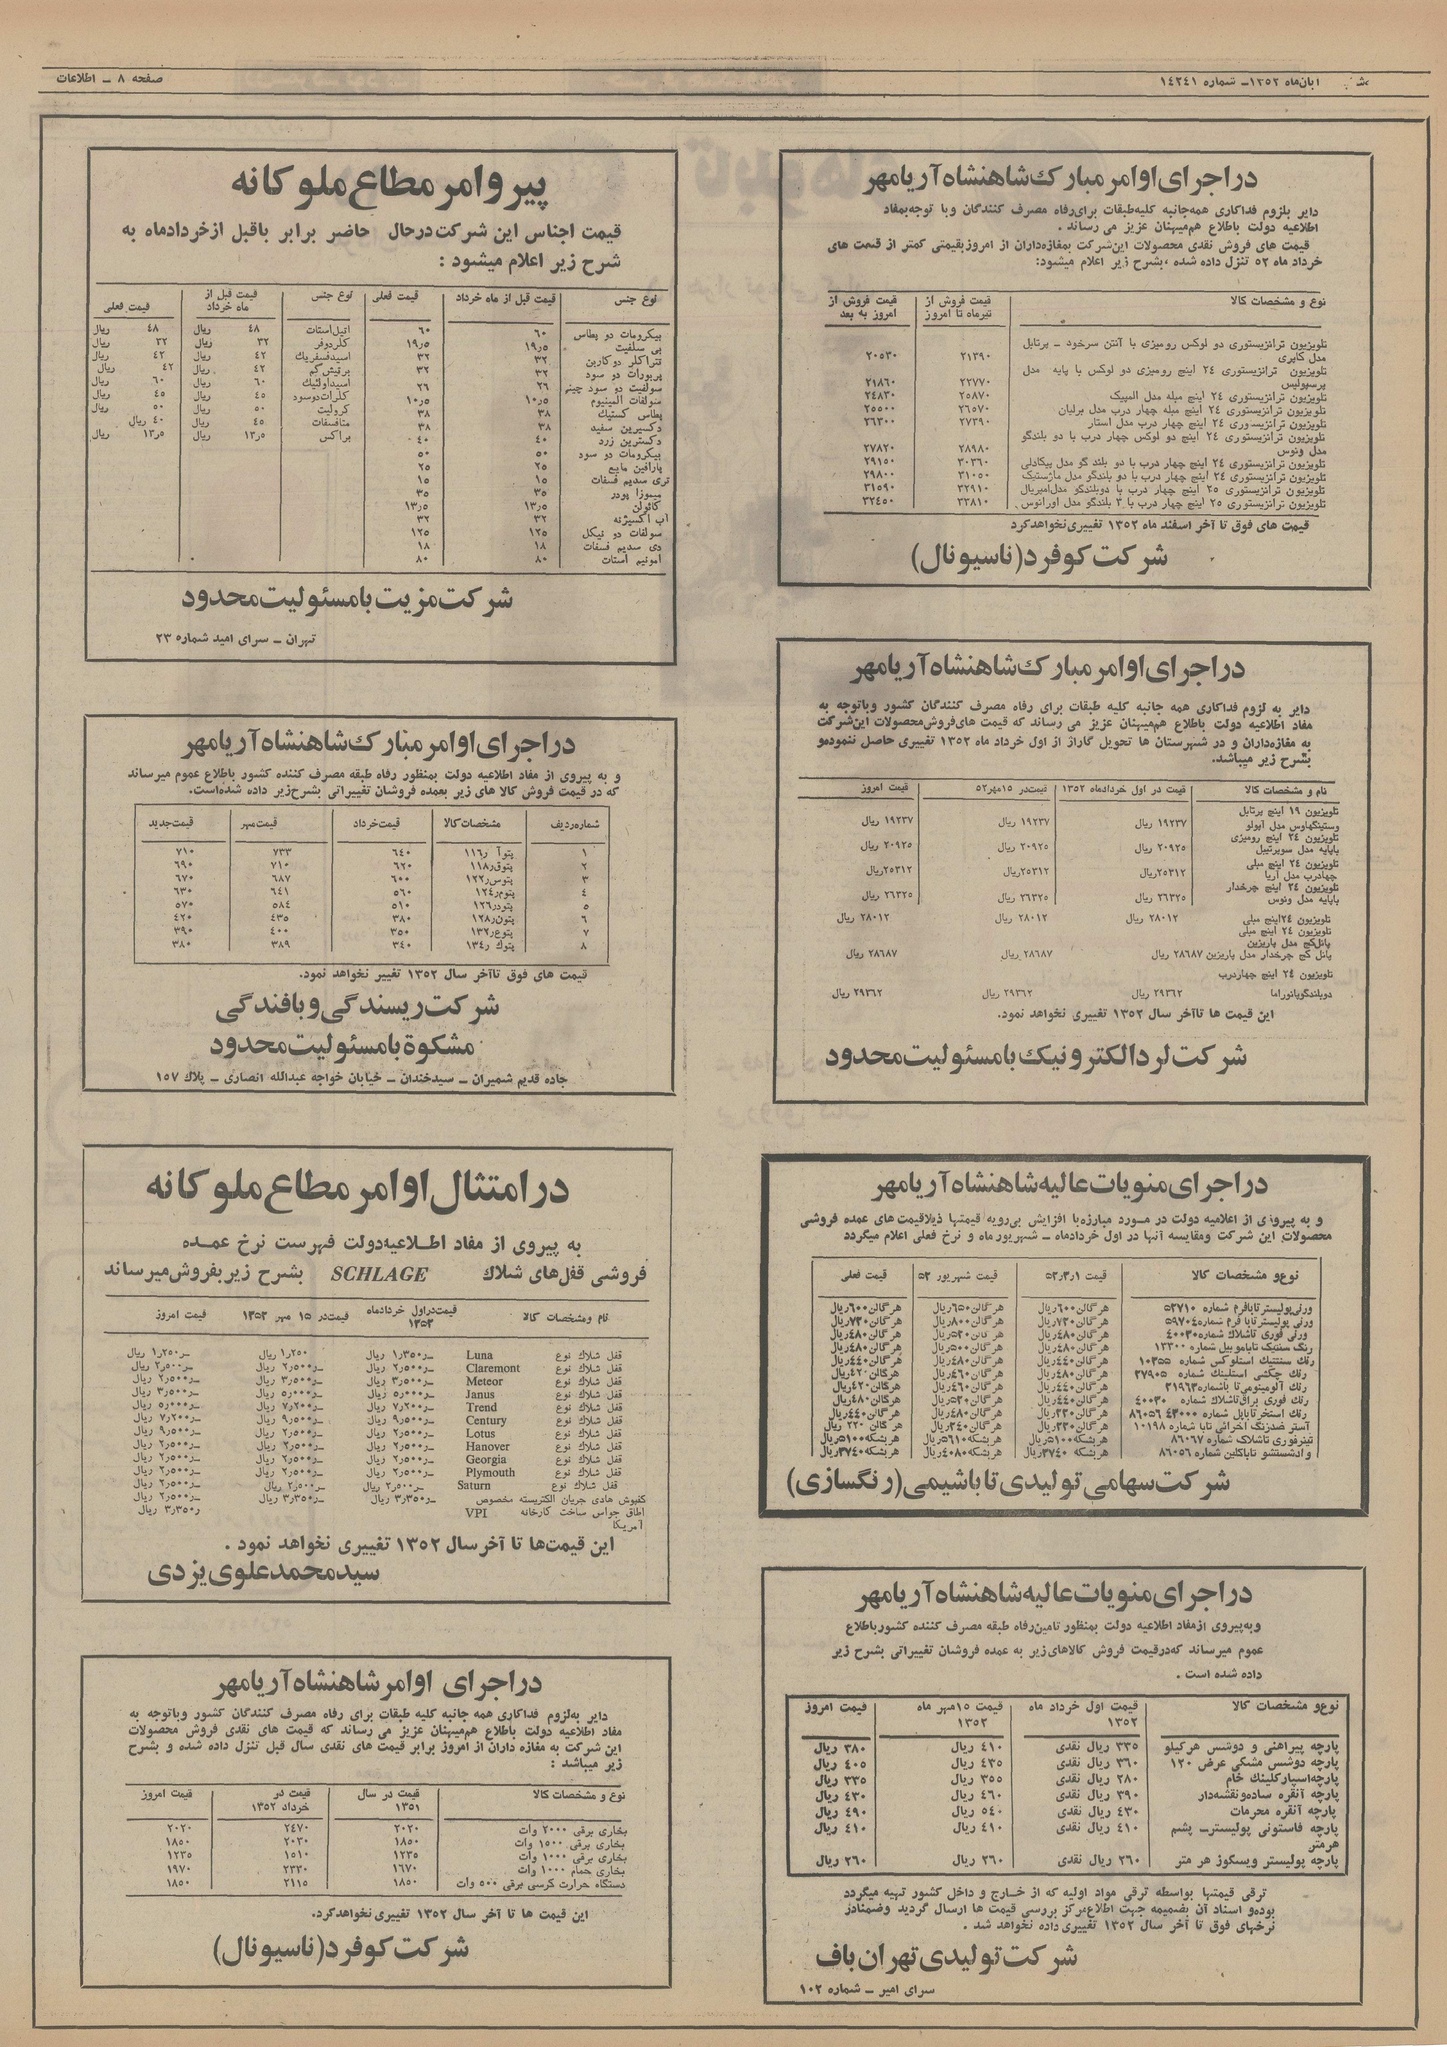 ابان‌ماه ۱۳۵۲ـ شماره ۱۴۲۴۱
صفحه ۸ ـ اطلاعات
دراجرای اوامر مبارک شاهنشاه آریامهر
دایر بلزوم فداکاری همه‌جانبه کلیه طبقات برای رفاه مصرف کنندگان وبا توجه بمفاد
اطلاعیه دولت باطلاع هم‌میهنان عزیز می رساند .
قیمت های فروش نقدی محصولات این‌شرکت بمغازه‌داران از امروز بقیمتی کمتر از قیمت های
خرداد ماه ۵۲ تنزل داده شده ،بشرح زیر اعلام میشود:
نوع و مشخصات کالا
قیمت فروش از تیرماه تا امروز
قیمت فروش از امروز به بعد
تلویزیون ترانزیستوری دو لوکس رومیزی با آنتن سرخود ـ پرتابل
مدل کاپری ۲۱۳۹۰ ۲۰۵۳۰
تلویزیون ترانزیستوری ۲۴ اینچ رومیزی دو لوکس با پایه مدل
پرسپولیس ۲۲۷۷۰ ۲۱۸۶۰
تلویزیون ترانزیستوری ۲۴ اینچ مبله مدل المپیک ۲۵۸۷۰ ۲۴۸۳۰
تلویزیون ترانزیستوری ۲۴ اینچ مبله چهار درب مدل برلیان ۲۶۵۷۰ ۲۵۵۰۰
تلویزیون ترانزیستوری ۲۴ اینچ چهار درب مدل استار ۲۷۳۹۰ ۲۶۳۰۰
تلویزیون ترانزیستوری ۲۴ اینچ دو لوکس چهار درب با دو بلندگو
مدل ونوس ۲۸۹۸۰ ۲۷۸۲۰
تلویزیون ترانزیستوری ۲۴ اینچ چهار درب با دو بلند گو مدل پیکادلی ۳۰۳۶۰ ۲۹۱۵۰
تلویزیون ترانزیستوری ۲۴ اینچ چهار درب با دو بلندگو مدل ماژستیک ۳۱۰۵۰ ۲۹۸۰۰
تلویزیون ترانزیستوری ۲۵ اینچ چهار درب با دوبلندگو مدل‌امپریال ۳۲۹۱۰ ۳۱۵۹۰
تلویزیون ترانزیستوری ۲۵ اینچ چهار درب با ۳ بلندگو مدل اورانوس ۳۳۸۱۰ ۳۲۴۵۰
قیمت های فوق تا آخر اسفند ماه ۱۳۵۲ تغییری‌نخواهدکرد
شرکت کوفرد(ناسیونال)
دراجرای اوامر مبارک شاهنشاه آریامهر
دایر به لزوم فداکاری همه جانبه کلیه طبقات برای رفاه مصرف کنندگان کشور وباتوجه به
مفاد اطلاعیه دولت باطلاع هم‌میهنان عزیز می رساند که قیمت های‌فروش‌محصولات این‌شرکت
به مغازه‌داران و در شهرستان ها تحویل گاراژ از اول خرداد ماه ۱۳۵۲ تغییری حاصل ننموده‌و
بشرح زیر میباشد.
نام و مشخصات کالا
قیمت در اول خردادماه ۱۳۵۲
قیمت‌در ۱۵مهر۵۲
قیمت امروز
تلویزیون ۱۹ اینچ پرتابل
وستینگهاوس مدل آپولو ۱۹۲۳۷ ریال ۱۹۲۳۷ ریال ۱۹۲۳۷ ریال
تلویزیون ۲۴ اینچ رومیزی
باپایه مدل سوپرتیبل ۲۰۹۲۵ ریال ۲۰۹۲۵ ریال ۲۰۹۲۵ ریال
تلویزیون ۲۴ اینچ مبلی
چهاردرب مدل آریا ۲۵۳۱۲ریال ۲۵۳۱۲ریال ۲۵۳۱۲ریال
تلویزیون ۲۴ اینچ چرخدار
باپایه مدل ونوس ۲۶۳۲۵ ریال ۲۶۳۲۵ ریال ۲۶۳۲۵ ریال
تلویزیون ۲۴اینچ مبلی ۲۸۰۱۲ ریال ۲۸۰۱۲ ریال ۲۸۰۱۲ ریال
تلویزیون ۲۴ اینچ مبلی
پانل‌کج مدل پاریزین
پانل کج چرخدار مدل پاریزین ۲۸۶۸۷ ریال ۲۸۶۸۷ ریال ۲۸۶۸۷ ریال
تلویزیون ۲۴ اینچ چهاردرب
دوبلندگوپانوراما ۲۹۳۶۲ ریال ۲۹۳۶۲ ریال ۲۹۳۶۲ ریال
این قیمت ها تاآخر سال ۱۳۵۲ تغییری نخواهد نمود.
شرکت لرد الکترونیک بامسئولیت محدود
دراجرای منویات عالیه شاهنشاه آریامهر
و به پیروی از اعلامیه دولت در مورد مبارزه‌با افزایش بی‌رویه قیمتها ذیلاقیمت های عمده فروشی
محصولات این شرکت ومقایسه آنها در اول خردادماه ـ شهریورماه و نرخ فعلی اعلام میگردد
نوع‌و مشخصات کالا
قیمت ۵۲ر۳ر۱
قیمت شهریور ۵۲
قیمت فعلی
ورنی‌پولیستر‌تابافرم شماره ۵۲۷۱۰ هر گالن۶۰۰ریال هر گالن۶۵۰ریال هر گالن۶۰۰ریال
ورنی پولیستر‌تابا فرم شماره۵۹۷۰۴ هر گالن۷۲۰ریال هر گالن۸۰۰ریال هر گالن۷۲۰ریال
ورنی فوری تاشلاک شماره۴۰۰۳۰ هر گالن۴۸۰ریال هر گالن۵۲۰ریال هر گالن۴۸۰ریال
رنگ سنتتیک تاباموبیل شماره ۱۳۳۰۰ هر گالن۴۸۰ریال هر گالن۵۰۰ریال هر گالن۴۸۰ریال
رنگ سنتتیک استلوکس شماره ۱۰۳۵۵ هر گالن۴۴۰ریال هر گالن۴۸۰ریال هر گالن۴۴۰ریال
رنگ چکشی استلینک شماره ۲۷۹۰۵ هر گالن۴۸۰ریال هر گالن۴۶۰ریال هر گالن۴۲۰ریال
رنگ آلومینومی‌تا باشماره۲۱۹۶۳ هر گالن۴۴۰ریال هر گالن۴۶۰ریال هر گالن۴۲۰ریال
رنگ فوری براق‌تاشلاک شماره ۴۰۰۳۰ هر گالن۴۸۰ریال هر گالن۵۲۰ریال هر گالن۴۸۰ریال
رنگ استخر‌تاباپل شماره ۴۳۰۰۰ ۸۶۰۵۶ هر گالن۴۴۰ریال هر گالن۴۸۰ریال هر گالن۴۴۰ریال
آستر ضدزنگ اخرائی تابا شماره ۱۰۱۹۸ هر گالن۲۲۰ریال هر گالن۲۴۰ریال هر گالن ۲۲۰ ریال
تینرفوری تاشلاک شماره ۸۶۰۶۷ هربشکه۵۱۰۰ریال هربشکه۵۶۱۰ریال هربشکه۵۱۰۰ریال
و ادشستشو تاباکلین شماره ۸۶۰۵۶ هربشکه ۳۷۴۰ریال هربشکه۴۰۸۰ریال هربشکه۳۷۴۰ریال
شرکت سهامی تولیدی تاباشیمی(رنگسازی)
دراجرای منویات عالیه شاهنشاه آریامهر
وبه‌پیروی ازمفاد اطلاعیه دولت بمنظور تامین‌رفاه طبقه مصرف کننده کشور‌باطلاع
عموم میرساند که‌درقیمت فروش کالاهای‌زیر به عمده فروشان تغییراتی بشرح زیر
داده شده است .
نوع‌و مشخصات کالا
قیمت اول خرداد ماه ۱۳۵۲
قیمت ۱۵مهر ماه ۱۳۵۲
قیمت امروز
پارچه پیراهنی و دوشس هرکیلو ۳۳۵ ریال نقدی ۴۱۰ ریال ۳۸۰ ریال
پارچه دوشس مشکی عرض ۱۲۰ ۳۶۰ ریال نقدی ۴۳۵ ریال ۴۰۵ ریال
پارچه‌اسپارکلینک خام ۲۸۰ ریال نقدی ۳۵۵ ریال ۳۳۵ ریال
پارچه آنقره ساده‌ونقشه‌دار ۳۹۰ ریال نقدی ۴۶۰ ریال ۴۳۰ ریال
پارچه آنقره محرمات ۴۳۰ ریال نقدی ۵۴۰ ریال ۴۹۰ ریال
پارچه فاستونی پولیسترـ پشم ۴۱۰ ریال نقدی ۴۱۰ ریال ۴۱۰ ریال
هرمتر
پارچه پولیستر ویسکوز هر متر ۲۶۰ ریال نقدی ۲۶۰ ریال ۲۶۰ ریال
ترقی قیمتها بواسطه ترقی مواد اولیه که از خارج و داخل کشور تهیه میگردد
بوده‌و اسناد آن بضمیمه جهت اطلاع‌مرکز بررسی قیمت ها ارسال گردید وضمنادر
نرخهای فوق تا آخر سال ۱۳۵۲ تغییری‌داده نخواهد شد .
شرکت تولیدی تهران باف
سرای امیر ـ شماره ۱۰۲
پیرو امر مطاع ملوکانه
قیمت اجناس این شرکت درحال حاضر برابر باقبل ازخردادماه به
شرح زیر اعلام میشود :
نوع جنس
قیمت قبل از ماه خرداد
قیمت فعلی
نوع جنس
قیمت قبل از ماه خرداد
قیمت فعلی
بیکرومات دو پطاس ۶۰ ۶۰ اتیل‌استات ۴۸ ریال ۴۸ ریال
بی سلفیت ۱۹ر۵ ۱۹ر۵ کلردوفر ۳۲ ریال ۳۲ ریال
تتراکلر دوکاربن ۳۲ ۳۲ اسیدفسفریک ۴۲ ریال ۴۲ ریال
پربورات دو سود ۳۲ ۳۲ برقیش‌کم ۴۲ ریال ۴۲ ریال
سولفیت دو سود چینی ۲۶ ۲۶ اسیداولئیک ۶۰ ریال ۶۰ ریال
سولفات المینیوم ۱۰ر۵ ۱۰ر۵ کلرات‌دوسود ۴۵ ریال ۴۵ ریال
پطاس کستیک ۳۸ ۳۸ کرولیت ۵۰ ریال ۵۰ ریال
دکسیرین سفید ۳۸ ۳۸ متافسفات ۴۵ ریال ۴۰ ریال
دکسترین زرد ۴۰ ۴۰ براکس ۱۳ر۵ ریال ۱۳ر۵ ریال
بیکرومات دو سود ۵۰ ۵۰
پارافین مایع ۲۵ ۲۵
تری سدیم فسفات ۱۵ ۱۵
میموزا پودر ۳۵ ۳۵
کائولن ۱۳ر۵ ۱۳ر۵
آب اکسیژنه ۳۲ ۳۲
سولفات دو نیکل ۱۲۵ ۱۲۵
دی سدیم فسفات ۱۸ ۱۸
آمونیم استات ۸۰ ۸۰
شرکت مزیت بامسئولیت محدود
تهران ـ سرای امید شماره ۲۳
دراجرای اوامر مبارک شاهنشاه آریامهر
و به پیروی از مفاد اطلاعیه دولت بمنظور رفاه طبقه مصرف کننده کشور باطلاع عموم میرساند
که در قیمت فروش کالا های زیر بعمده فروشان تغییراتی بشرح‌زیر داده شده‌است.
شماره‌ردیف
مشخصات کالا
قیمت‌خرداد
قیمت‌مهر
قیمت‌جدید
۱ پتوآ ر۱۱۶ ۶۴۰ ۷۳۳ ۷۱۰
۲ پتوق‌ر۱۱۸ ۶۲۰ ۷۱۰ ۶۹۰
۳ پتوس‌ر۱۲۲ ۶۰۰ ۶۸۷ ۶۷۰
۴ پتوم‌ر۱۲۴ ۵۶۰ ۶۴۱ ۶۳۰
۵ پتودر۱۲۶ ۵۱۰ ۵۸۴ ۵۷۰
۶ پتون‌ر۱۲۸ ۳۸۰ ۴۳۵ ۴۲۰
۷ پتوع‌ر۱۳۲ ۳۵۰ ۴۰۰ ۳۹۰
۸ پتوک ر۱۳۴ ۳۴۰ ۳۸۹ ۳۸۰
قیمت های فوق تاآخر سال ۱۳۵۲ تغییر نخواهد نمود.
شرکت ریسندگی وبافندگی
مشکوة بامسئولیت محدود
جاده قدیم شمیران ـ سیدخندان ـ خیابان خواجه عبدالله انصاری ـ پلاک ۱۵۷
درامتثال اوامر مطاع ملوکانه
به پیروی از مفاد اطلاعیه‌دولت فهرست نرخ عمده
فروشی قفل‌های شلاک SCHLAGE بشرح زیر بفروش‌میرساند
نام ومشخصات کالا
قیمت‌در‌اول خردادماه ۱۳۵۲
قیمت‌در ۱۵ مهر ۱۳۵۲
قیمت امروز
قفل شلاک نوع Luna ـر۱٫۳۵۰ ریال ۱٫۲۵۰ ریال ـر۱٫۲۵۰ ریال
قفل شلاک نوع Claremont ـر۲٫۵۰۰ ریال ـر۲٫۵۰۰ ریال ـر۲٫۵۰۰ ریال
قفل شلاک نوع Meteor ـر۳٫۵۰۰ ریال ـر۳٫۵۰۰ ریال ـر۲٫۵۰۰ ریال
قفل شلاک نوع Janus ـر۵٫۰۰۰ ریال ـر۵٫۰۰۰ ریال ـر۳٫۵۰۰ ریال
قفل شلاک نوع Trend ـر۷٫۲۰۰ ریال ـر۷٫۲۰۰ ریال ـر۵٫۰۰۰ ریال
قفل شلاک نوع Century ـر۹٫۵۰۰ ریال ـر۹٫۵۰۰ ریال ـر۷٫۲۰۰ ریال
قفل شلاک نوع Lotus ـر۲٫۵۰۰ ریال ـر۲٫۵۰۰ ریال ـر۹٫۵۰۰ ریال
قفل شلاک نوع Hanover ـر۲٫۵۰۰ ریال ـر۲٫۵۰۰ ریال ـر۲٫۵۰۰ ریال
قفل شلاک نوع Georgia ـر۲٫۵۰۰ ریال ـر۲٫۵۰۰ ریال ـر۲٫۵۰۰ ریال
قفل شلاک نوع Plymouth ـر۲٫۵۰۰ ریال ـر۲٫۵۰۰ ریال ـر۲٫۵۰۰ ریال
قفل شلاک نوع Saturn ـر۲٫۵۰۰ ریال ـر۲٫۵۰۰ ریال ـر۲٫۵۰۰ ریال
کفپوش هادی جریان الکتریسته مخصوص ـر۳٫۳۵۰ ریال ـر۳٫۳۵۰ ریال ـر۲٫۵۰۰ ریال
اطاق جراحی ساخت کارخانه VPI ر۳٫۳۵۰ ریال
آمریکا
این قیمت‌ها تا آخر سال ۱۳۵۲ تغییری نخواهد نمود .
سیدمحمدعلوی یزدی
دراجرای اوامر شاهنشاه آریامهر
دایر به‌لزوم فداکاری همه جانبه کلیه طبقات برای رفاه مصرف کنندگان کشور وباتوجه به
مفاد اطلاعیه دولت باطلاع هم‌میهنان عزیز می رساند که قیمت های نقدی فروش محصولات
این شرکت به مغازه داران از امروز برابر قیمت های نقدی سال قبل تنزل داده شده و بشرح
زیر میباشد :
نوع و مشخصات کالا
قیمت در سال ۱۳۵۱
قیمت در خرداد ۱۳۵۲
قیمت امروز
بخاری برقی ۲۰۰۰ وات ۲۰۲۰ ۲۴۷۰ ۲۰۲۰
بخاری برقی ۱۵۰۰ وات ۱۸۵۰ ۲۰۳۰ ۱۸۵۰
بخاری برقی ۱۰۰۰ وات ۱۲۳۵ ۱۵۱۰ ۱۲۳۵
بخاری حمام ۱۰۰۰ وات ۱۶۷۰ ۲۳۳۰ ۱۹۷۰
دستگاه حرارت کرسی برقی ۵۰۰ وات ۱۸۵۰ ۲۱۱۵ ۱۸۵۰
این قیمت ها تا آخر سال ۱۳۵۲ تغییری‌نخواهدکرد.
شرکت کوفرد(ناسیونال)